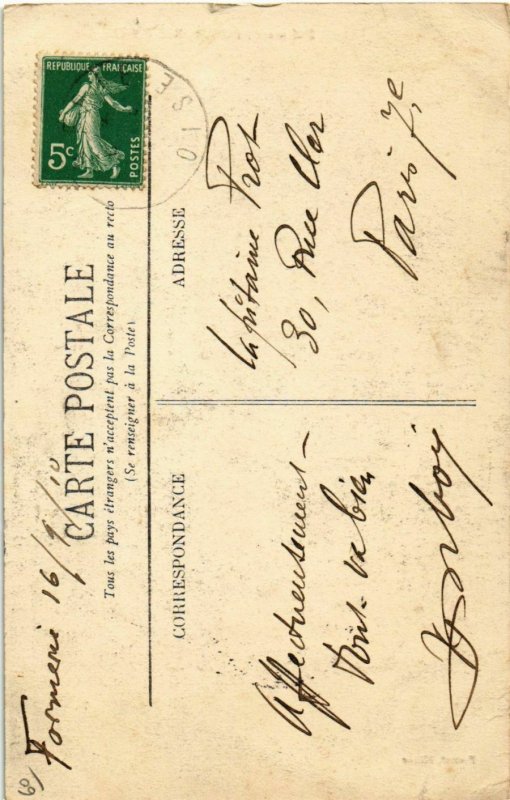 Formerie 16/9/10
CARTE POSTALE
Tous les pays étrangers n'acceptent pas la Correspondance au recto
(Se renseigner à la Poste)
CORRESPONDANCE
Affectueusement -
Tout va bien
ADRESSE
Capitaine Prot
30, Rue Cler
Paris 7e.
REPUBLIQUE FRANÇAISE
5c
POSTES
OISE
68